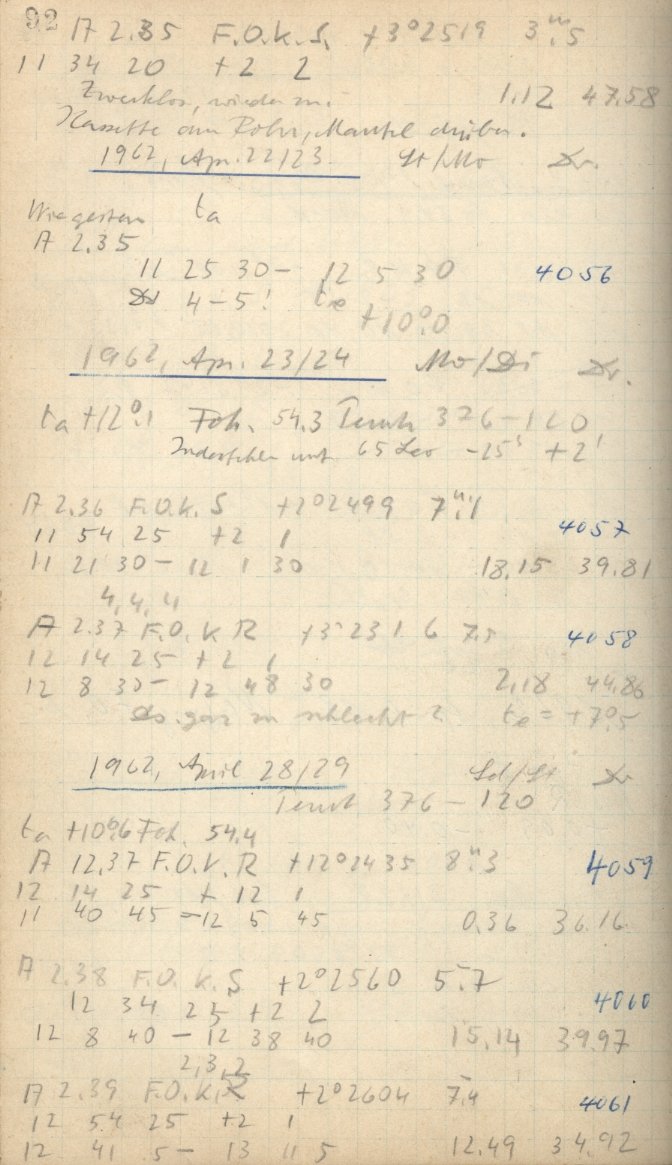 92 A 2.35 F.O.K.S. +3°2519 3ᵐ.5
11 34 20 +2 2
Zwecklos, wieder zu. 1.12 47.58
Kassette am Rohr, Mantel drüber.
1962, Apr. 22/23 St/Mo Dr.
Wie gestern ta
A 2.35
11 25 30 – 12 5 30 4056
4–5! te
+10°.0
1962, Apr. 23/24 Mo/Di Dr.
ta +12°.1 Fok. 54.3 Temh 376–120
65 Leo -25' +2'
A 2.36 F.O.K.S +2°2499 7ᵐ.1
4057
11 54 25 +2 1
11 21 30 – 12 1 30 18.15 39.81
4,4,4
A 2.37 F.O.K R +3°2316 7.5 4058
12 14 25 +2 1
12 8 30 – 12 48 30 2.18 44.86
Ds. ganz zu schlecht? te = +7°.5
1962, April 28/29 Sd/St Dr
376 – 120
ta +10°.6 Fok. 54.4
A 12.37 F.O.K.R +12°2435 8ᵐ.3 4059
12 14 25 +12 1
11 40 45 – 12 5 45 0.36 36.16
A 2.38 F.O.K.S +2°2560 5.7
4060
12 34 25 +2 2
12 8 40 – 12 38 40 15.14 39.97
2,3,2
A 2.39 F.O.K. +2°2604 7.4 4061
12 54 25 +2 1
12 41 5 – 13 11 5 12.49 34.92